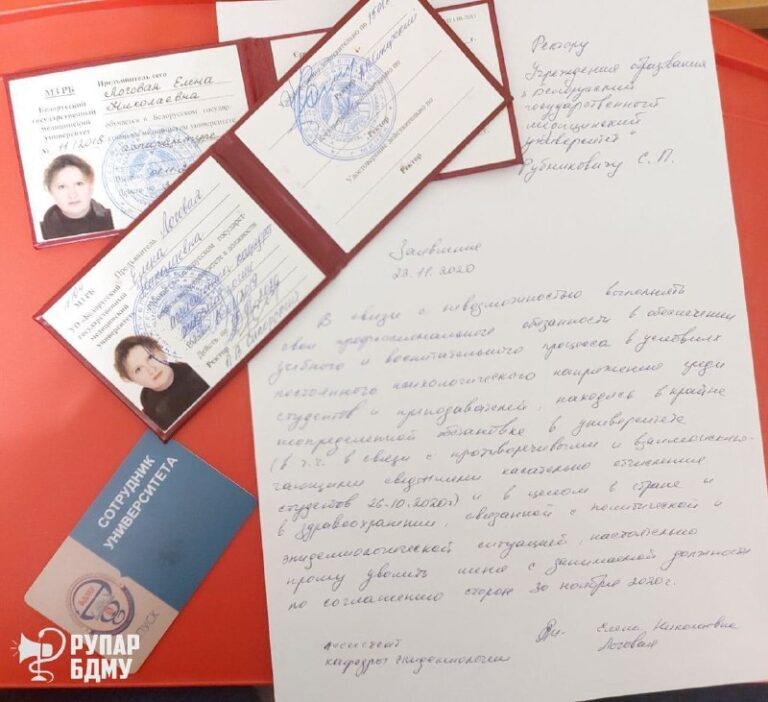 МЗ РБ
Белорусский
государственный
медицинский
университет
№ 11/2018
Предъявитель сего
Логовая Елена
Николаевна
обучается в Белорусском государст-
венном медицинском университете
аспирантуре
Удостоверение действительно по
Ректор
Удостоверение действительно по
Ректор
Удостоверение действительно по
Ректор
МЗ РБ
УО «Белорусский
государственный
медицинский
университет»
Предъявитель Логовая
Елена
Николаевна
в Белорусском государст-
университете в должности
Ректор
СОТРУДНИК
УНИВЕРСИТЕТА
РУПАР
БДМУ
Ректору
Учреждения образования
"Белорусский
государственный
медицинский
университет"
Рубниковичу С. П.
Заявление
22.11.2020
В связи с невозможностью выполнять
свои профессиональные обязанности в обеспечении
учебного и воспитательного процесса в условиях
постоянного психологического напряжения среди
студентов и преподавателей, находясь в крайне
неопределенной обстановке в университете
(в т.ч. в связи с противоречивыми и взаимоисклю-
чающими сведениями касательно отчисления
студентов 26.10.2020г) и в целом в стране и
в здравоохранении, связанной с политической и
эпидемиологической ситуацией, настоятельно
прошу уволить меня с занимаемой должности
по соглашению сторон 30 ноября 2020г.
ассистент
кафедры эпидемиологии
Елена Николаевна
Логовая